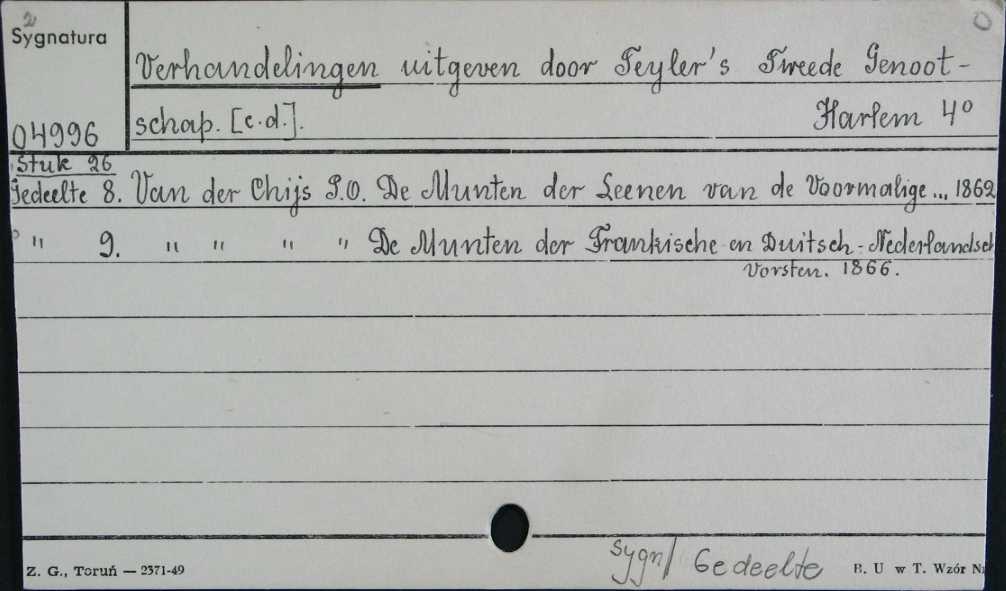 2
Sygnatura
0
Verhandelingen uitgeven door Teyler's Tweede Genoot-
schap. [c.d.]. Harlem 4º
04996
Stuk 26
Gedeelte 8. Van der Chijs P.O. De Munten der Leenen van de Voormalige ... 1862
" 9. " " " " De Munten der Frankische en Duitsch-Nederlandsch
Vorsten. 1866.
sygn/ Gedeelte
Z. G., Toruń — 2371-49
B. U w T. Wzór Nr